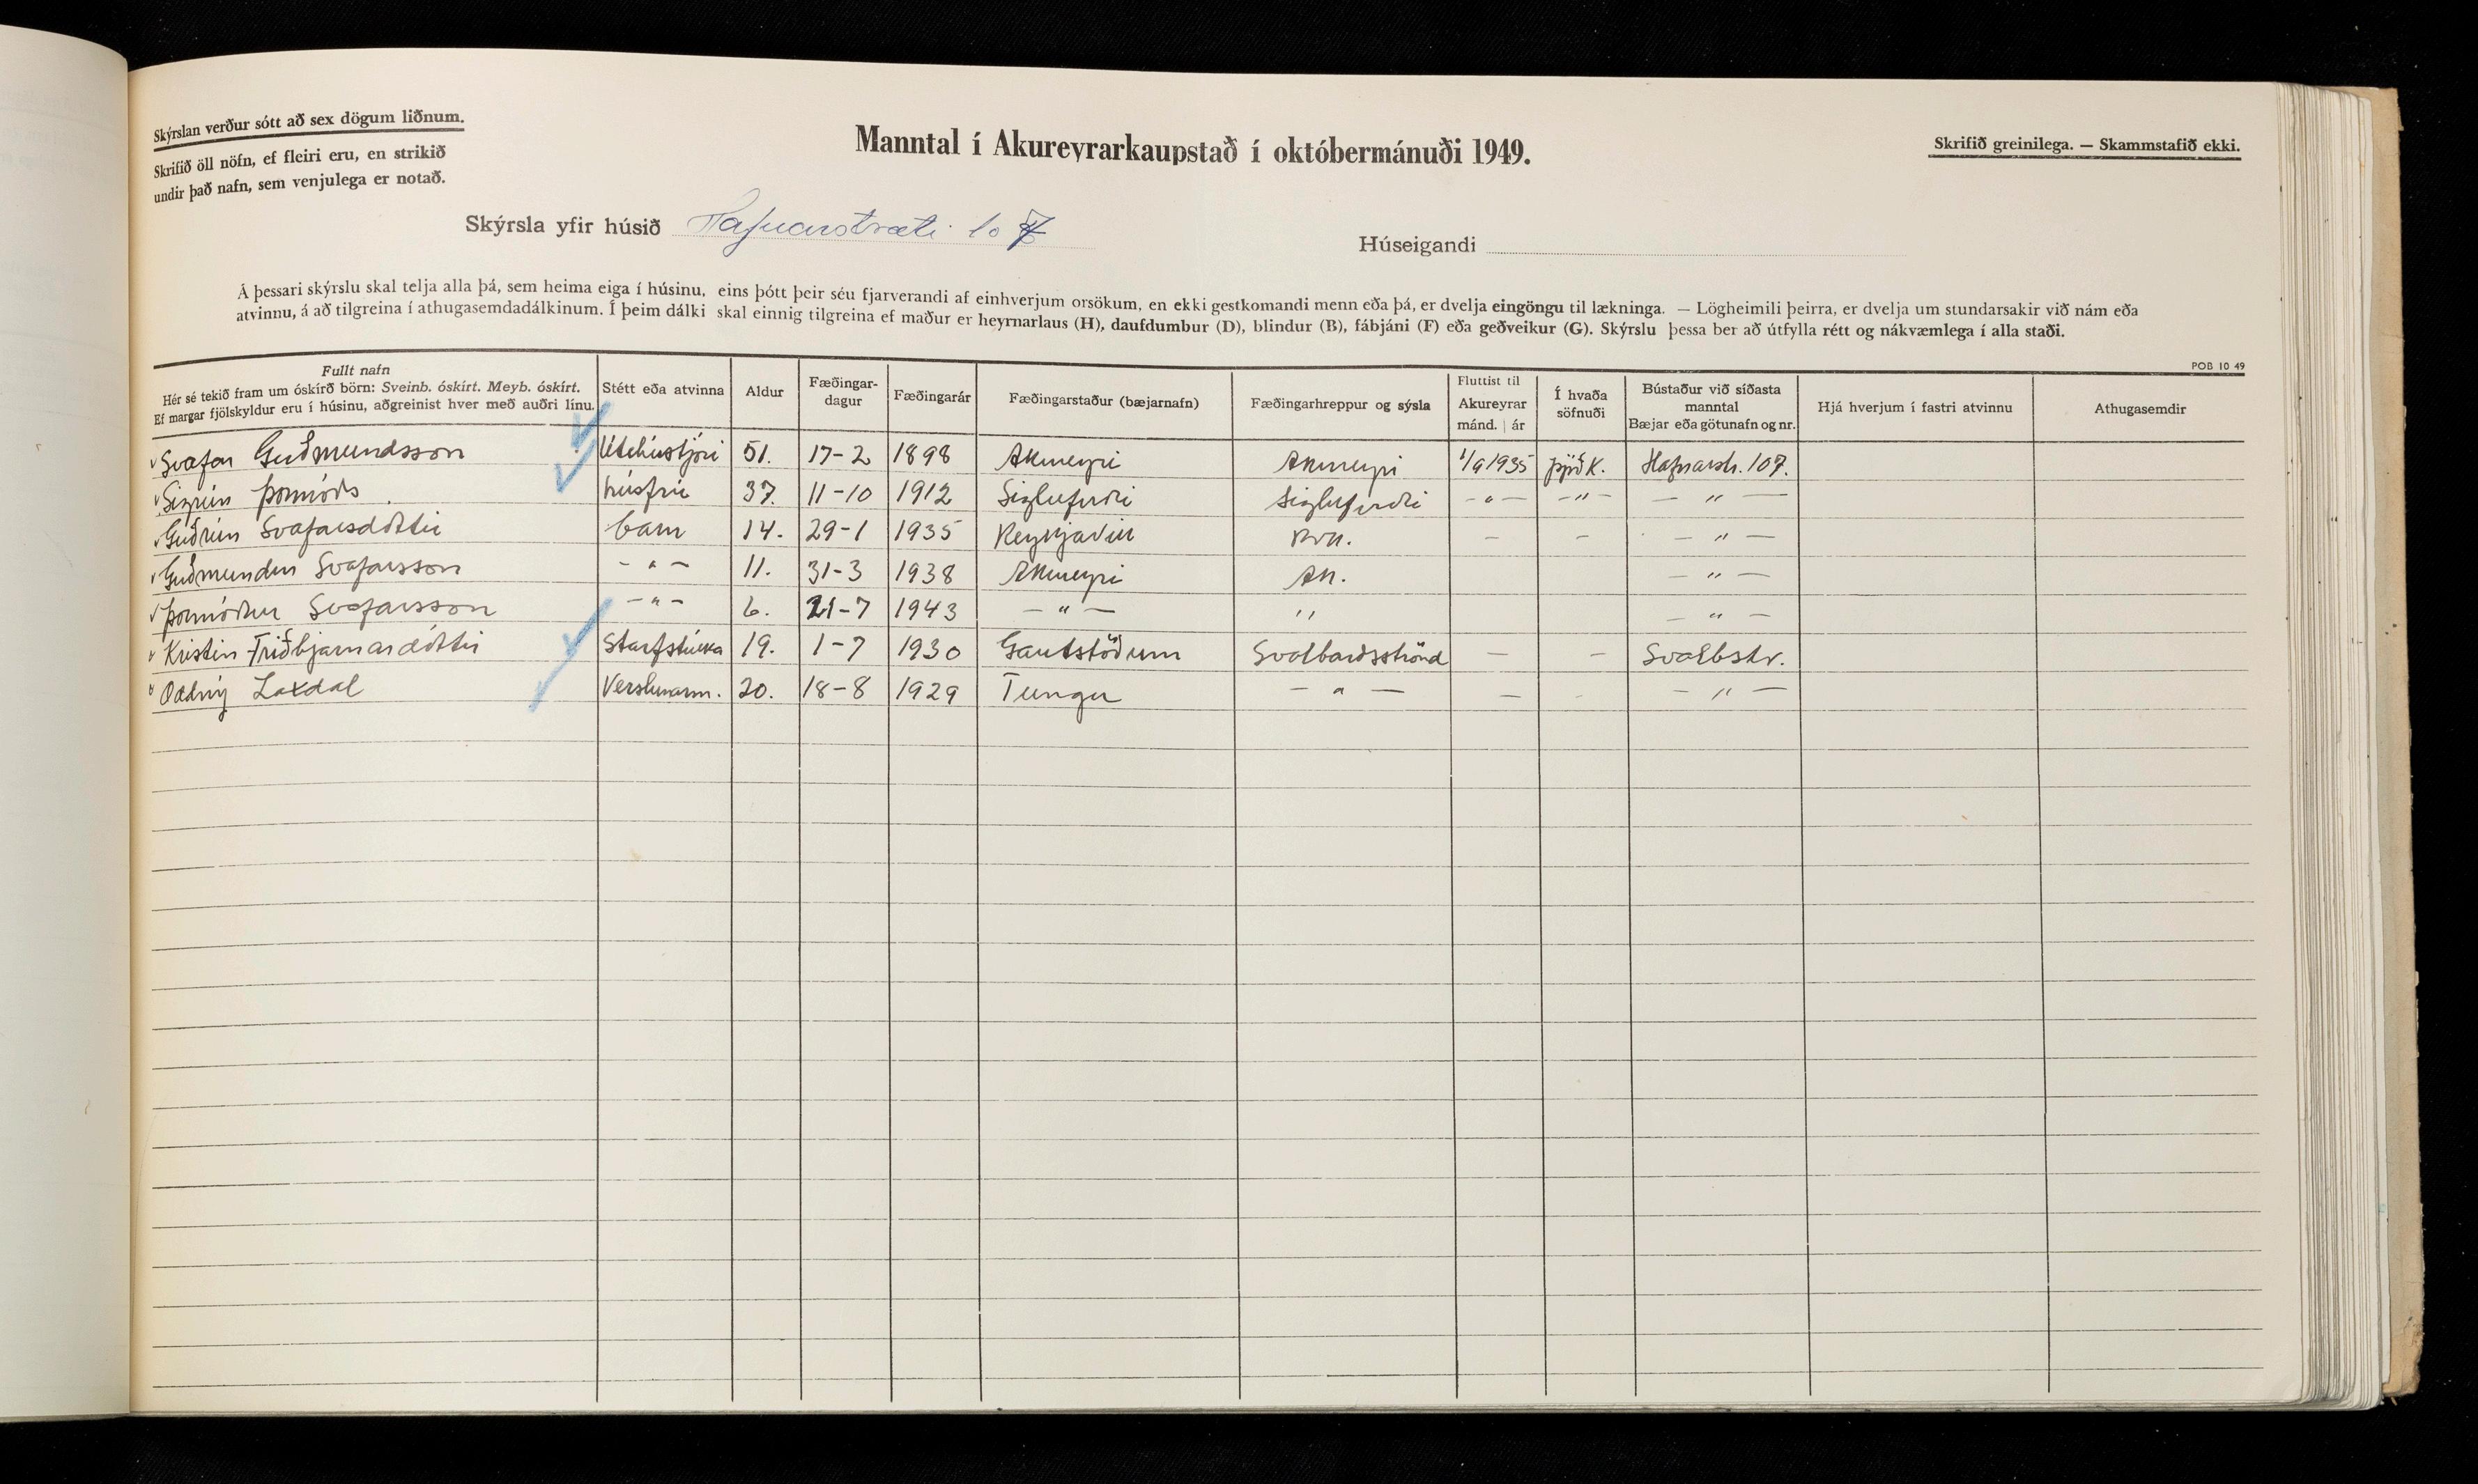 Skýrslan verður sótt að sex dögum liðnum.
Skrifið öll nöfn, ef fleiri eru, en strikið
undir það nafn, sem venjulega er notað.
Manntal í Akureyrarkaupstað í októbermánuði 1949.
Skrifið greinilega. — Skammstafið ekki.
Skýrsla yfir húsið Hafnarstræti 107
Húseigandi
Á þessari skýrslu skal telja alla þá, sem heima eiga í húsinu, eins þótt þeir séu fjarverandi af einhverjum orsökum, en ekki gestkomandi menn eða þá, er dvelja eingöngu til lækninga. — Lögheimili þeirra, er dvelja um stundarsakir við nám eða
atvinnu, á að tilgreina í athugasemdadálkinum. Í þeim dálki skal einnig tilgreina ef maður er heyrnarlaus (H), daufdumbur (D), blindur (B), fábjáni (F) eða geðveikur (G). Skýrslu þessa ber að útfylla rétt og nákvæmlega í alla staði.
POB 10 49
Fullt nafn
Hér sé tekið fram um óskírð börn: Sveinb. óskírt. Meyb. óskírt.
Ef margar fjölskyldur eru í húsinu, aðgreinist hver með auðri línu.
Stétt eða atvinna
Aldur
Fæðingar-
dagur
Fæðingarár
Fæðingarstaður (bæjarnafn)
Fæðingarhreppur og sýsla
Fluttist til
Akureyrar
mánd. | ár
Í hvaða
söfnuði
Bústaður við síðasta
manntal
Bæjar eða götunafn og nr.
Hjá hverjum í fastri atvinnu
Athugasemdir
Svafar Guðmundsson Útibússtjóri 51. 17-2 1898 Akureyri Akureyri 1/9 1935 þjóðk. Hafnarstr. 107.
Sigrún Þormóðs húsfrú 37. 11-10 1912 Siglufirði Siglufirði -"- -"- -"-
Guðrún Svafarsdóttir barn 14. 29-1 1935 Reykjavík Rvk. - - -"-
Guðmundur Svafarsson -"- 11. 31-3 1938 Akureyri Ak. -"-
Þormóður Svafarsson -"- 6. 21-7 1943 -"- " -"-
Kristín Friðbjarnardóttir Starfstúlka 19. 1-7 1930 Gautstöðum Svalbarðsströnd - - Svalbstr.
Oddný Laxdal Verslunarm. 20. 18-8 1929 Tungu -"- - - -"-